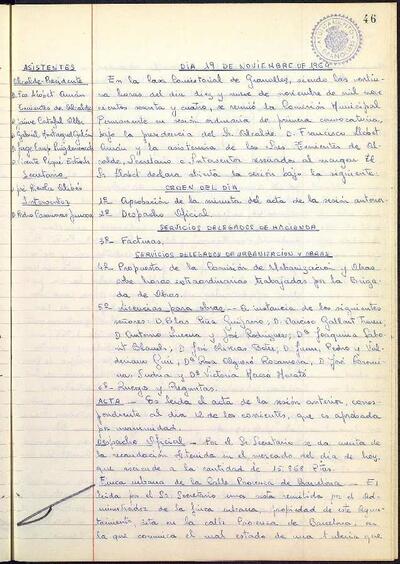 46
ASISTENTES
Alcalde-Presidente
D. Fco Llobet Arnán
Tenientes de Alcalde
D. Jaime
D. Gabriel
D. Jorge
D. Vicente
Secretario
José
Interventor
D. Pedro
DIA 19 DE NOVIEMBRE DE 1964
En la Casa Consistorial de Granollers, siendo las veinte
horas del día diez y nueve de noviembre de mil nove
cientos sesenta y cuatro, se reunió la Comisión Municipal
Permanente en sesión ordinaria de primera convocatoria,
bajo la presidencia del Sr. Alcalde D. Francisco Llobet
Arnán y la asistencia de los Sres. Tenientes de Al-
calde, Secretario e Interventor reseñados al margen. El
Sr. Llobet declara abierta la sesión bajo la siguiente:
ORDEN DEL DIA
1º Aprobación de la minuta del acta de la sesión anterior
2º Despacho Oficial.
SERVICIOS DELEGADOS DE HACIENDA
3º Facturas.
SERVICIOS DELEGADOS DE URBANIZACION Y OBRAS
4º Propuesta de la Comisión de Urbanización y Obras
sobre horas extraordinarias trabajadas por la Briga-
da de Obras.
5º Licencias para obras - A instancia de los siguientes
señores: D. Blas Ruiz Quijano, D. Narciso Gallart
D. Antonio D. José Rodriguez, Dª Joaquina
D. José Rivas D. Juan, Pedro y
Dª Rosa D. José
y Dª Victoria
6º Ruegos y Preguntas.
ACTA.- Es leída el acta de la sesión anterior, corres-
pondiente al día 12 de los corrientes, que es aprobada
por unanimidad.
Despacho Oficial - Por el Sr. Secretario se da cuenta de
la recaudación obtenida en el mercado del día de hoy,
que asciende a la cantidad de 15.868 Ptas.
Finca urbana de la Calle Provenza de Barcelona - Es
leída por el Sr. Secretario una nota remitida por el Ad-
ministrador de la finca urbana, propiedad de este Ayun-
tamiento, sita en la calle Provenza de Barcelona, en
la que comunica el mal estado de una tubería que